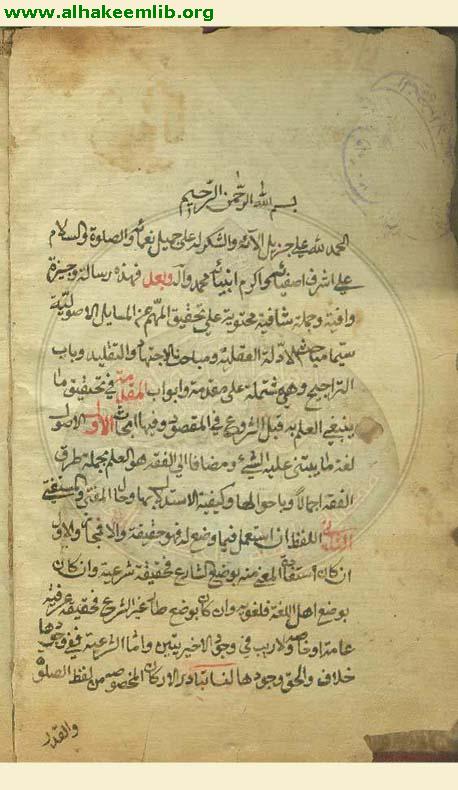 www.alhakeemlib.org
بسم الله الرحمن الرحيم
الحمد لله على جزيل الآئه والشكر له على جميل نعمائه والصلوة والسلام
على اشرف اصفيائه واكرم انبيائه محمد وآله وبعد فهذه رسالة وجيزة
وافية وجملة شافية محتوية على تحقيق المهم من المسايل الاصولية
سيما مباحث الادلة العقلية ومباحث الاجتهاد والتقليد وباب
التراجيح وهي مشتملة على مقدمة وابواب المقدمة في تحقيق ما
ينبغي العلم به قبل الشروع في المقصود وفيها ابحاث الاول الاصول
لغة ما يبتنى عليه الشيء ومضافا الى الفقه هو العلم بجملة طرق
الفقه اجمالا وباحوالها وكيفية الاستدلال بها وحال المفتى والمستفتى
الثانى اللفظ ان استعمل فيما وضع له فهو حقيقة والا فمجاز والاول
ان كان استفادة المعنى منه بوضع الشارع فحقيقة شرعية وان كان
بوضع اهل اللغة فلغوية وان كان بوضع طارٍ غير الشرع فحقيقة عرفية
عامة او خاصة ولا ريب في وجود الاخيرتين واما الشرعية ففي وجودها
خلاف والحق وجودها لنا تبادر الاركان المخصوصة من لفظ الصلوة
والقدر